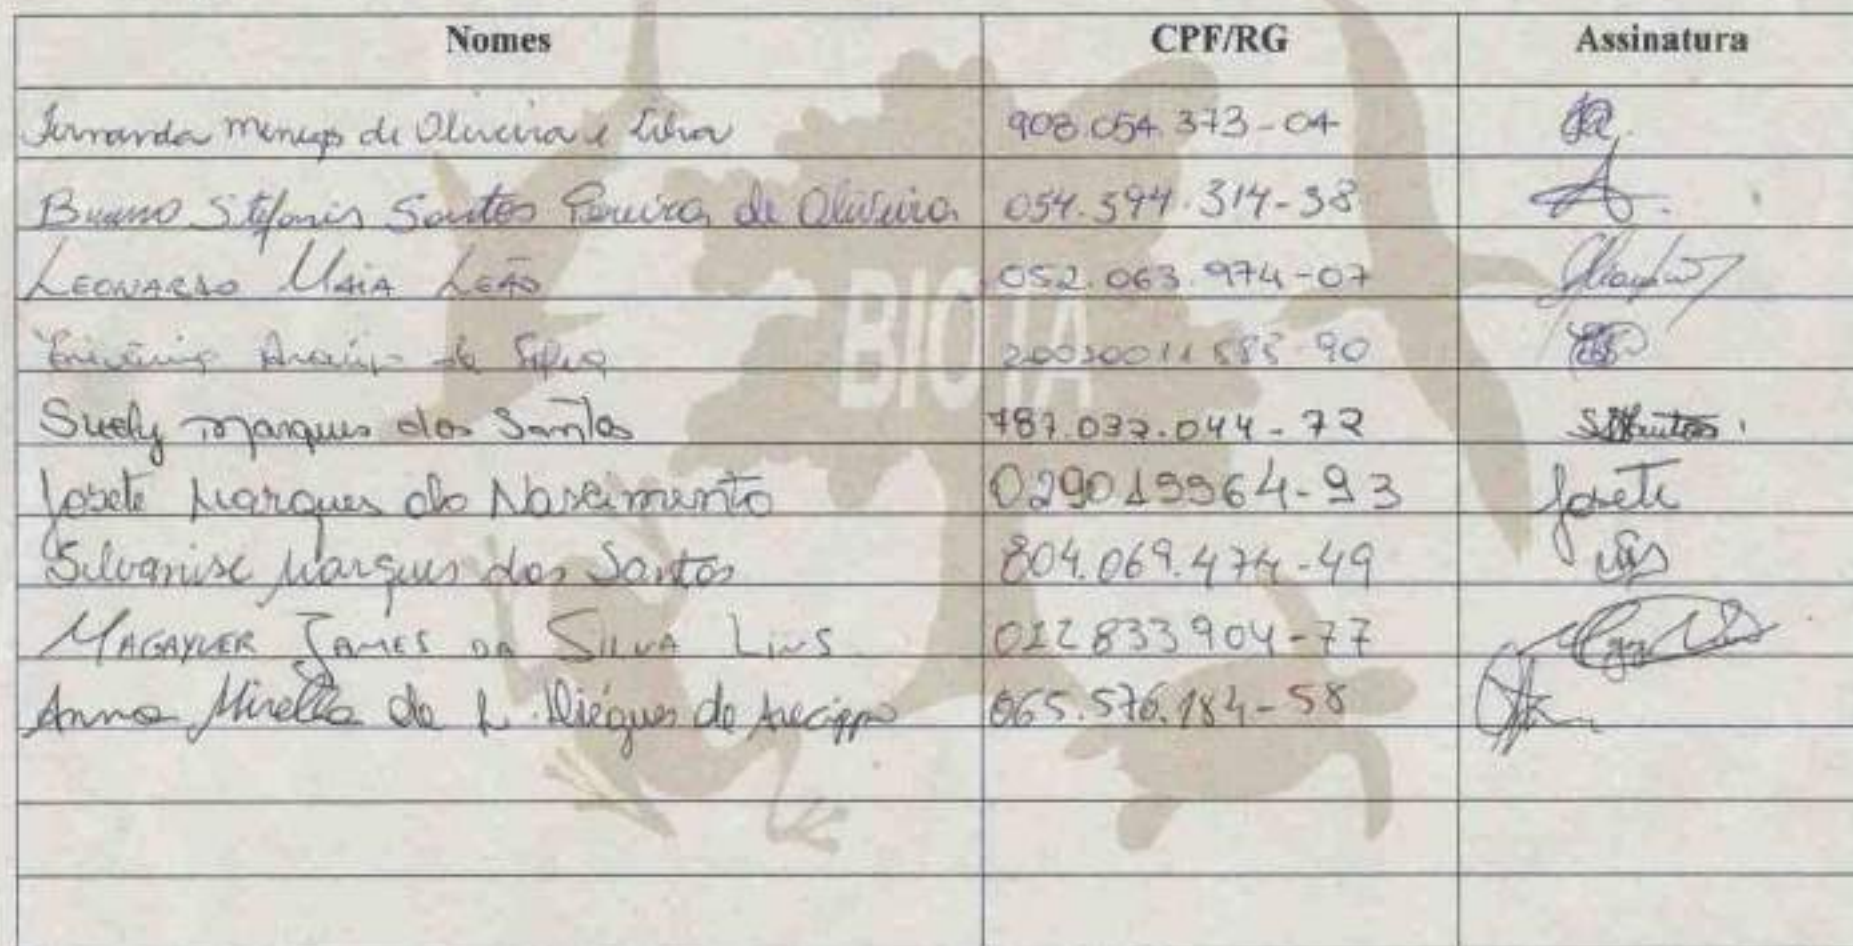 Nomes CPF/RG Assinatura
Fernanda de Oliveira e 908.054.373-04
Bruno Stefanis Santos Pereira de Oliveira 054.594.314-38
LEONARDO MAIA LEÃO 052.063.974-07
Araújo da Silva
Suely Marques dos Santos 787.037.044-72
Josete Marques do Nascimento 029019964-93 Josete
Silvanise Marques dos Santos 804.069.474-49
MAGAYVER JAMES DA SILVA LINS 012833904-77
Anna Mirella de L. Diégues de 065.576.184-58
BIOTA